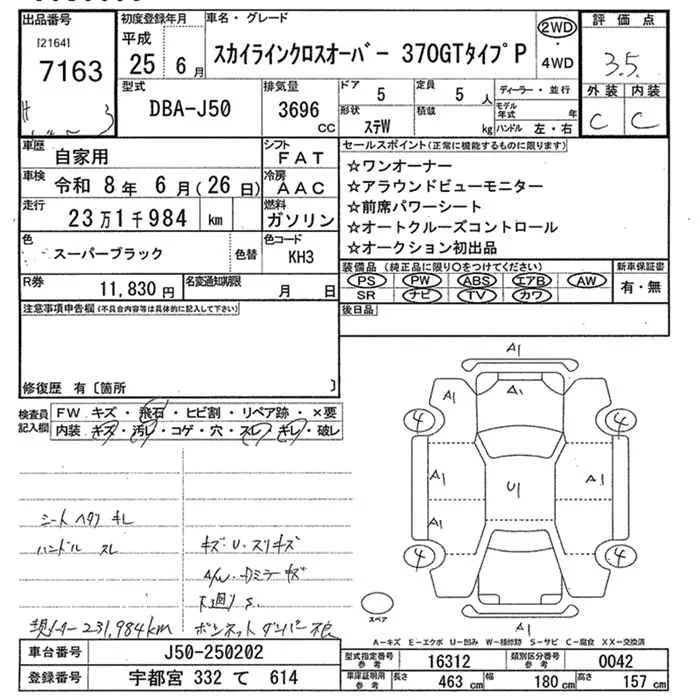 出品番号
[2164]
7163
初度登録年月
平成
25 6 月
車名・グレード
スカイラインクロスオーバー 370GTタイプP
2WD
・
4WD
評価点
3.5
外装 内装
C C
型式
DBA-J50
排気量
3696
cc
ドア
5
定員
5 人
形状
ステW
積載
kg
ディーラー・並行
モデル年式 年
ハンドル 左・右
車歴
自家用
シフト
FAT
車検
令和 8年 6月(26日)
冷房
AAC
走行
23万1千984 km
燃料
ガソリン
色
スーパーブラック
色替
色コード
KH3
R券
11,830 円
名変通知期限
月 日
セールスポイント(正常に機能するものに限ります)
☆ワンオーナー
☆アラウンドビューモニター
☆前席パワーシート
☆オートクルーズコントロール
☆オークション初出品
装備品(純正品に限り○をつけてください)
PS PW ABS エアB AW
SR ナビ TV カワ
新車保証書
有・無
後日品
注意事項申告欄(不具合内容等は具体的に記入して下さい)
修復歴 有〔箇所 〕
検査員
記入欄
FW キズ・飛石・ヒビ割・リペア跡・×要
内装 キズ・汚レ・コゲ・穴・スレ・キレ・破レ
シートヘタリ キレ
ハンドル スレ
キズ・U・スリキズ
A/W・Dミラーキズ
下廻りS.
現メーター231,984km
ボンネットダンパー不良
A1
A1
A1
4
4
A1
A1
U1
A1
4
4
A1
スペア
A-キズ E-エクボ U-凹み W-補修跡 S-サビ C-腐食 XX-交換済
車台番号
J50-250202
登録番号
宇都宮 332 て 614
型式指定番号
参考
16312
類別区分番号
参考
0042
車庫証明用
参考
長さ
463 cm
幅
180 cm
高さ
157 cm